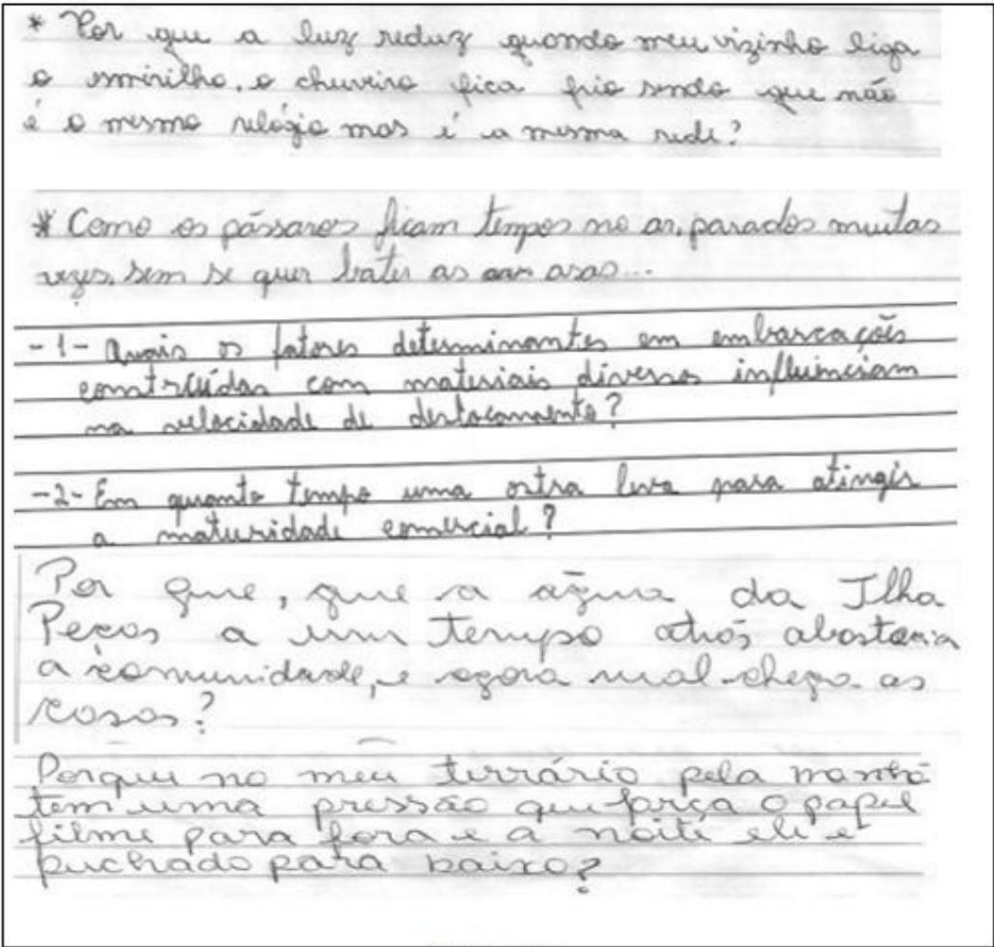 * Por que a luz reduz quando meu vizinho liga
o esmirilho, o chuveiro fica frio sendo que não
é o mesmo relógio mas é a mesma rede?
* Como os pássaros ficam tempos no ar, parados muitas
vezes, sem se quer bater as asas...
-1- Quais os fatores determinantes em embarcações
construídas com materiais diversos influenciam
na velocidade de deslocamento?
-2- Em quanto tempo uma ostra leva para atingir
a maturidade comercial?
Por que, que a água da Ilha
Peças a um tempo atrás abastecia
a comunidade, e agora mal chega as
casas?
Porque no meu terrário pela manhã
tem uma pressão que força o papel
filme para fora e a noite ele é
puchado para baixo?